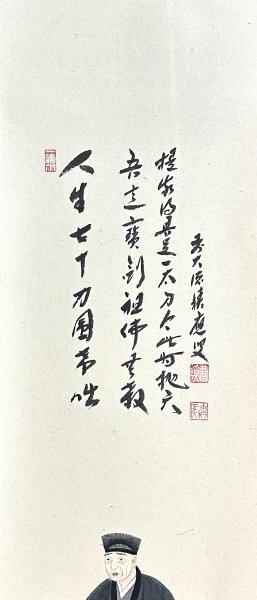 人生七十力囲希咄
吾這寳剣祖佛共殺
提我得具足一太刀今此時抛天
前大徳積應叟